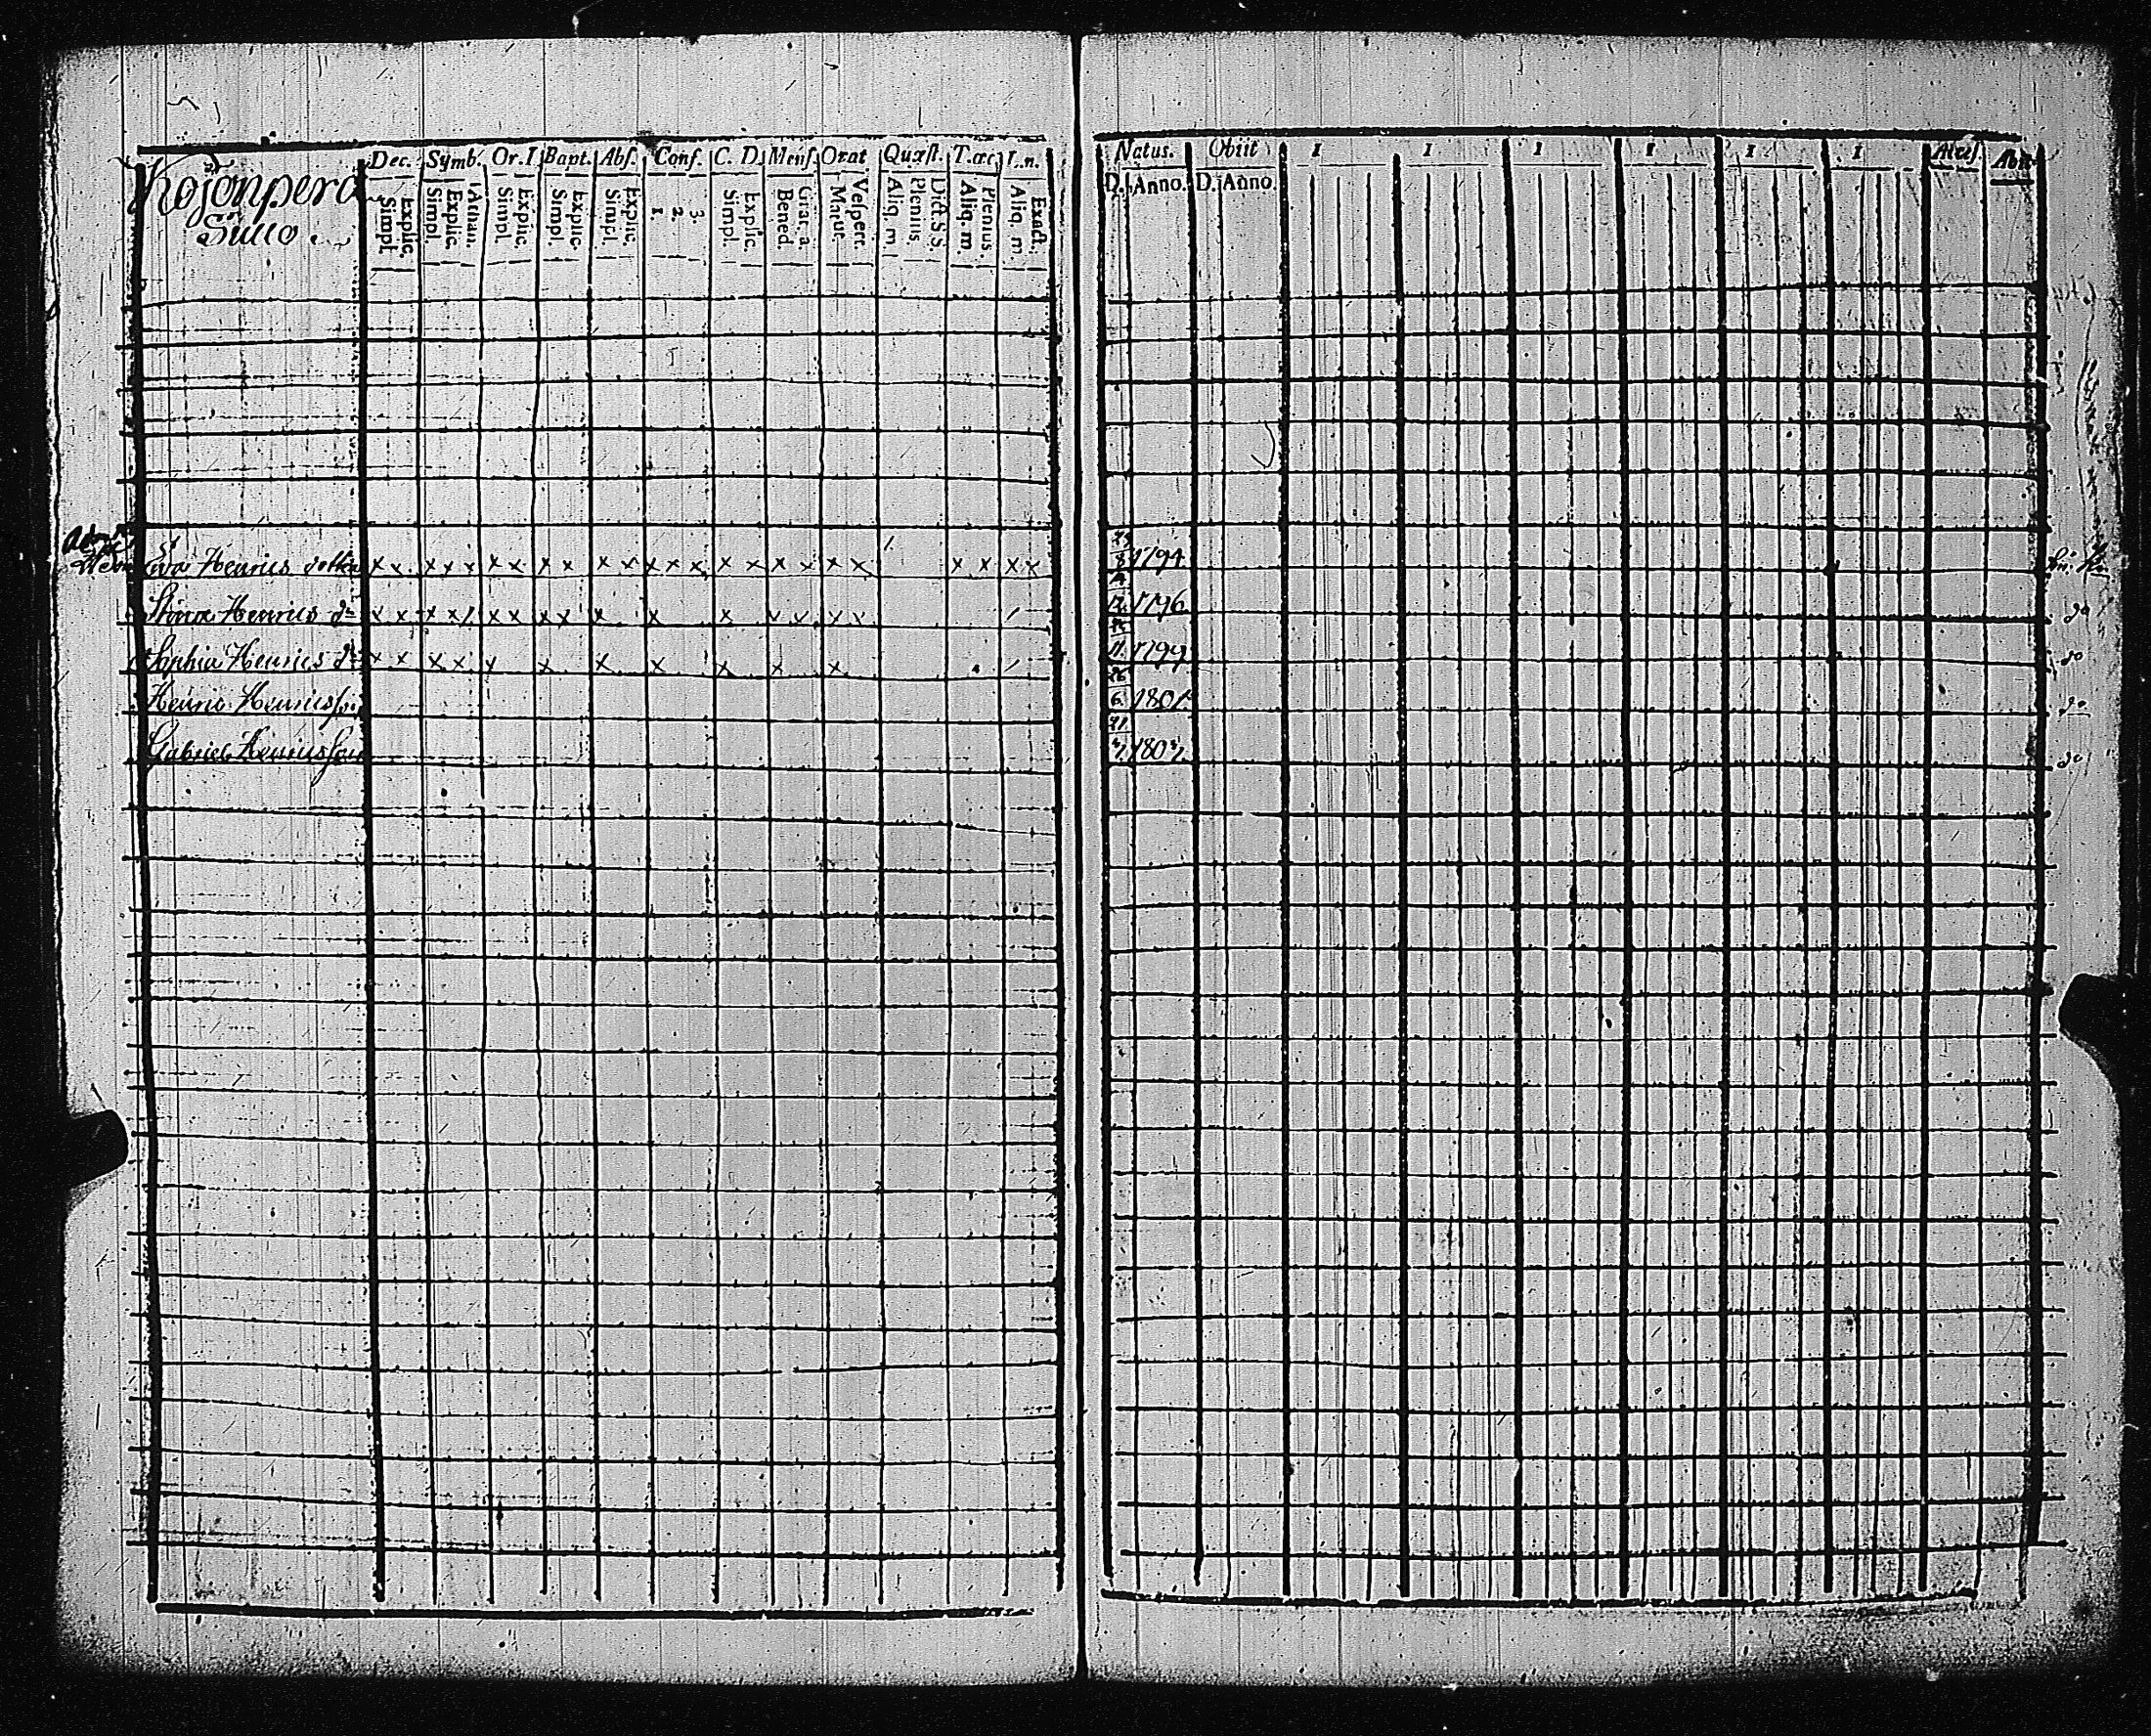 Kojonpera
Dec. Symb. Or. I Bapt. Abs. Conf. C. D. Mens. Orat Quæst. T.œc.
Explic. Simpl. Athan. Explic. Simpl. Explic. Simpl. Explic. Simpl. Explic. Simpl. 3. 2. 1 Explic. Simpl. Grat. a. Bened. Vespert. Matut. Dict. S.S. Plenius. Aliq. m. Plenius. Aliq. m. Exact. Aliq. m.
Natus. Obiit 1 1 1 1 1 1 Access. Abiit
D. Anno. D. Anno.
Eva Henrics dotter x x x x x x x x x x x x x x x x x x x x x x x x 1794
Stina Henrics do x x x x x x x x x x x x x x x x 1796
Sophia Henrics do x x x x x x x x x x x x 1799 do
Henric Henricsson 6 1801 do
Gabriel Henricsson 1803 do